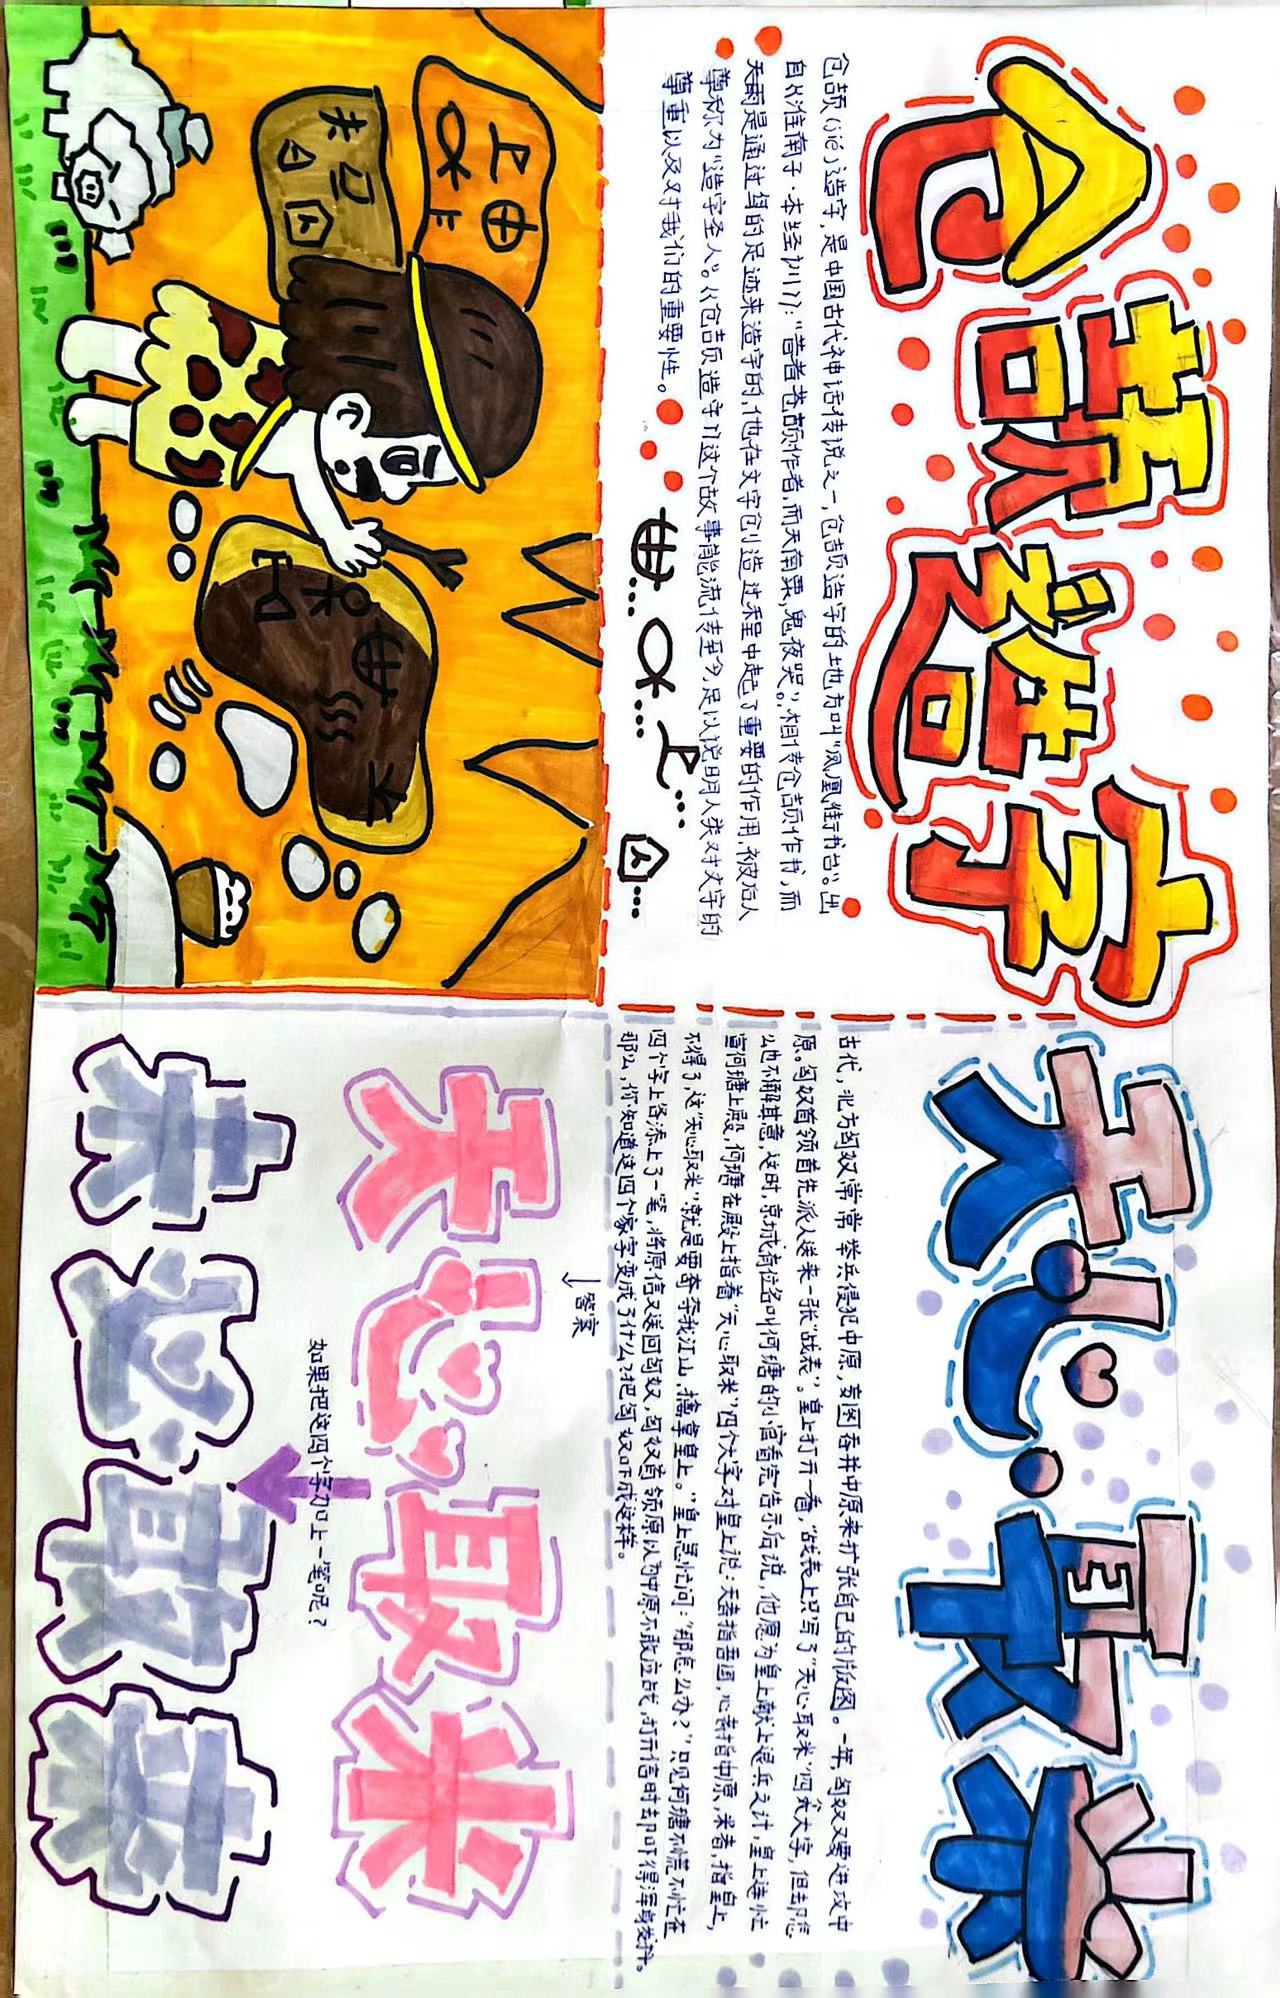 仓颉造字
仓颉(jié)造字,是中国古代神话传说之一,仓颉造字的地方叫"凤凰衔书台"。出
自《淮南子·本经训》:"昔者苍颉作书,而天雨粟,鬼夜哭"。相传仓颉作书,而
天雨是通过鸟的足迹来造字的,他在文字创造过程中起了重要的作用,被后人
尊称为"造字圣人"。《仓颉造字》这个故事能流传至今,足以说明人类对文字的
尊重以及对我们的重要性。
天心取米
古代,北方匈奴常常举兵侵犯中原,妄图吞并中原来扩张自己的版图。一年,匈奴又要进攻中
原。匈奴首领首先派人送来一张"战表"。皇上打开一看,"战表上只写了"天心取米"四个大字,但却怎
么也不解其意,这时,京城有位名叫何瑭的小官看完告示后说,他愿为皇上献上退兵之计,皇上连忙
宣何瑭上殿,何瑭在殿上指着"天心取米"四个大字对皇上说:天者指吾国,心者指中原,米者,指皇上,
不得了,这"天心取米"就是要夺我江山,擒拿皇上。"皇上急忙问:"那怎么办?"只见何瑭不慌不忙在
四个字上各添上了一笔,将原信又送回匈奴,匈奴首领原以为中原不敢应战,打开信时却吓得浑身发抖。
那么,你知道这四个家字变成了什么?把匈奴吓成这样。
答案
天心取米
如果把这四个字加上一笔呢?
未必敢来